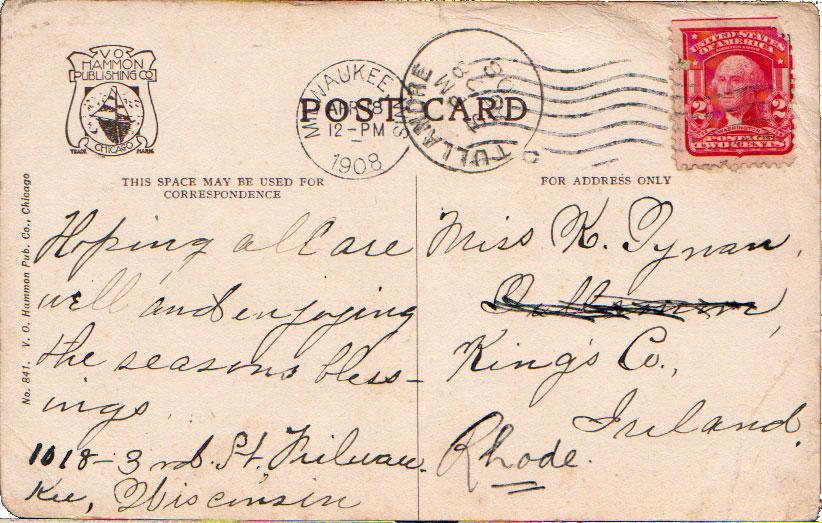 V O
HAMMON
PUBLISHING CO
CHICAGO
TRADE MARK
MILWAUKEE
WIS
APR 18
12-PM
1908
TULLAMORE
POST CARD
UNITED STATES
OF AMERICA
WASHINGTON
2 2
POSTAGE
TWO CENTS
THIS SPACE MAY BE USED FOR
CORRESPONDENCE
FOR ADDRESS ONLY
No. 841. V. O. Hammon Pub. Co., Chicago
Hoping all are
well and enjoying
the seasons bless-
ings.
1018-3rd. St. Milwau-
kee, Wisconsin
Miss K. Tynan,
King's Co.,
Ireland.
Rhode.